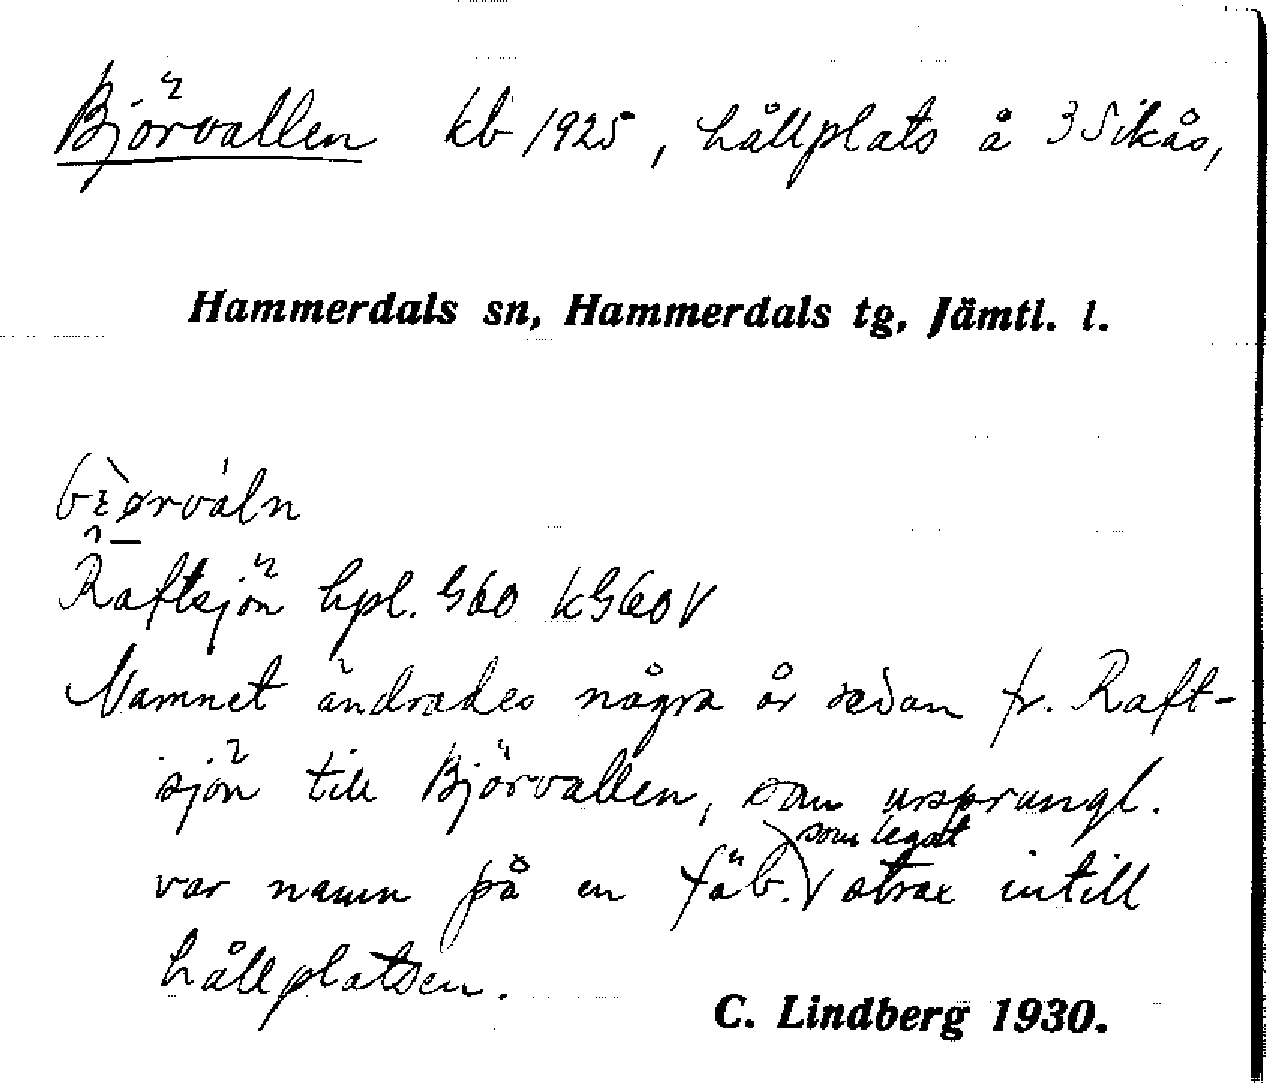 Björvallen kb 1925, hållplats å 3 Sikås,
Hammerdals sn, Hammerdals tg, Jämtl. l.
Raftsjön hpl. G60 kG60V
Namnet ändrades några år sedan fr. Raft-
sjön till Björvallen, som ursprungl.
som legat
var namn på en fäb. strax intill
hållplatsen.
C. Lindberg 1930.